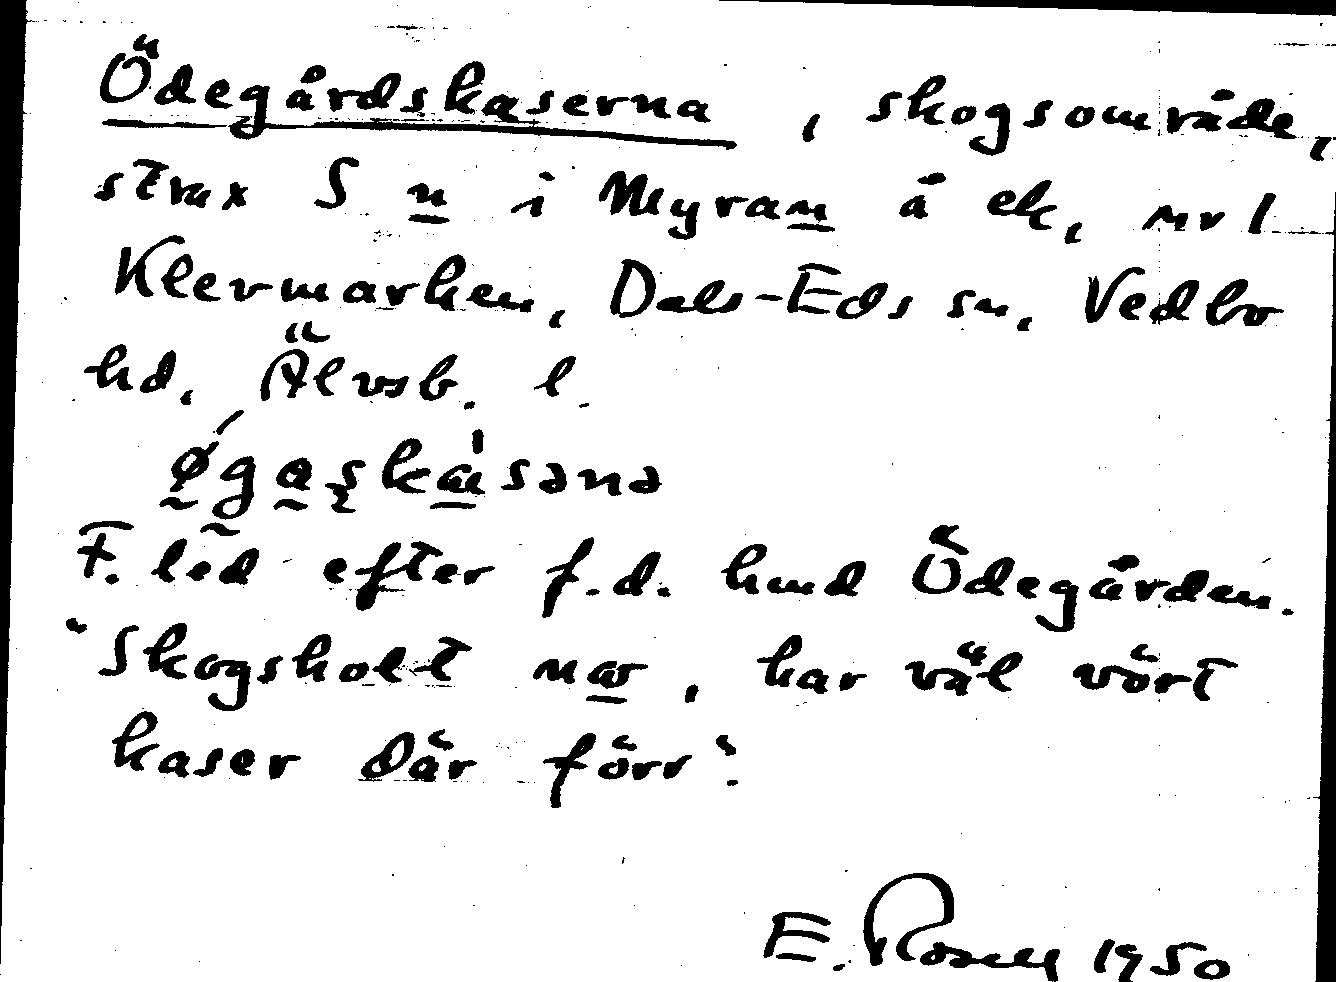 Ödegårdskaserna, skogsområde,
strax S n i Myran å ek, nr 1
Klevmarken, Dals-Eds sn, Vedbo
hd, Älvsb. l.
F. led efter f.d. hmd Ödegården.
"Skogsholt nw, har väl vört
kaser där förr".
E. Rosell 1950